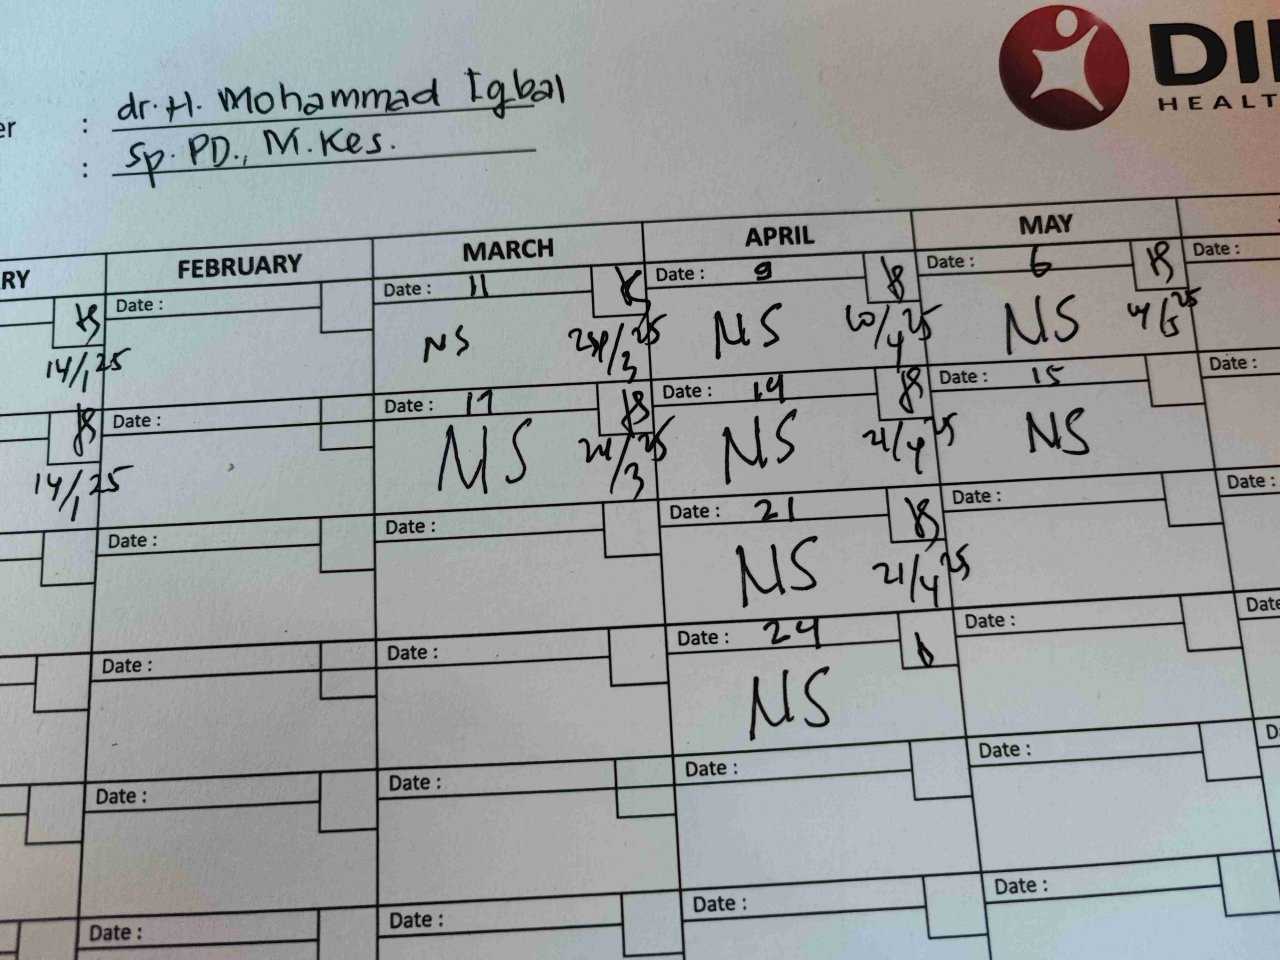 er : dr. H. Mohammad Iqbal
: Sp. PD., M. Kes.
DI
HEALT
RY FEBRUARY MARCH APRIL MAY
Date : Date : 11 Date : 9 Date : 6 Date :
14/1 25 NS 25 NS 10/4 25 NS 25
Date : Date : 17 Date : 14 Date : 15 Date :
14/1 25 NS 24/3 25 NS 21/4 25 NS
Date : Date : Date : 21 Date : Date :
NS 21/4 25
Date : Date : Date : 24 Date : Date
NS
Date : Date : Date : Date : D
Date : Date : Date : Date :